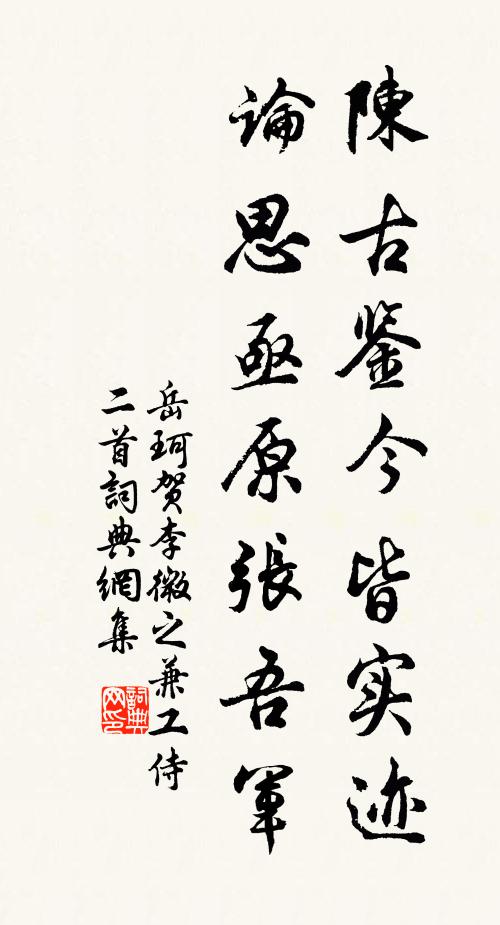 陳古鉴今皆实迹
論思亟原張吾軍
岳珂贺李微之兼工侍
二首詞典網集
詞典网印